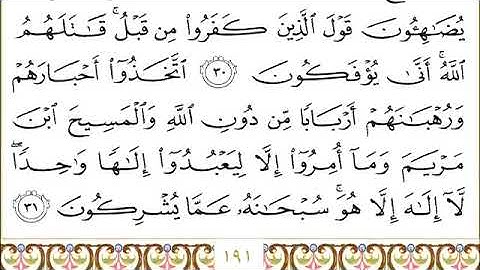 يُضَـٰهِـُٔونَ قَوْلَ ٱلَّذِينَ كَفَرُوا۟ مِن قَبْلُ ۚ قَـٰتَلَهُمُ
ٱللَّهُ ۚ أَنَّىٰ يُؤْفَكُونَ ٣٠ ٱتَّخَذُوٓا۟ أَحْبَارَهُمْ
وَرُهْبَـٰنَهُمْ أَرْبَابًا مِّن دُونِ ٱللَّهِ وَٱلْمَسِيحَ ٱبْنَ
مَرْيَمَ وَمَآ أُمِرُوٓا۟ إِلَّا لِيَعْبُدُوٓا۟ إِلَـٰهًا وَٰحِدًا ۖ
لَّآ إِلَـٰهَ إِلَّا هُوَ ۚ سُبْحَـٰنَهُۥ عَمَّا يُشْرِكُونَ ٣١
١٩١